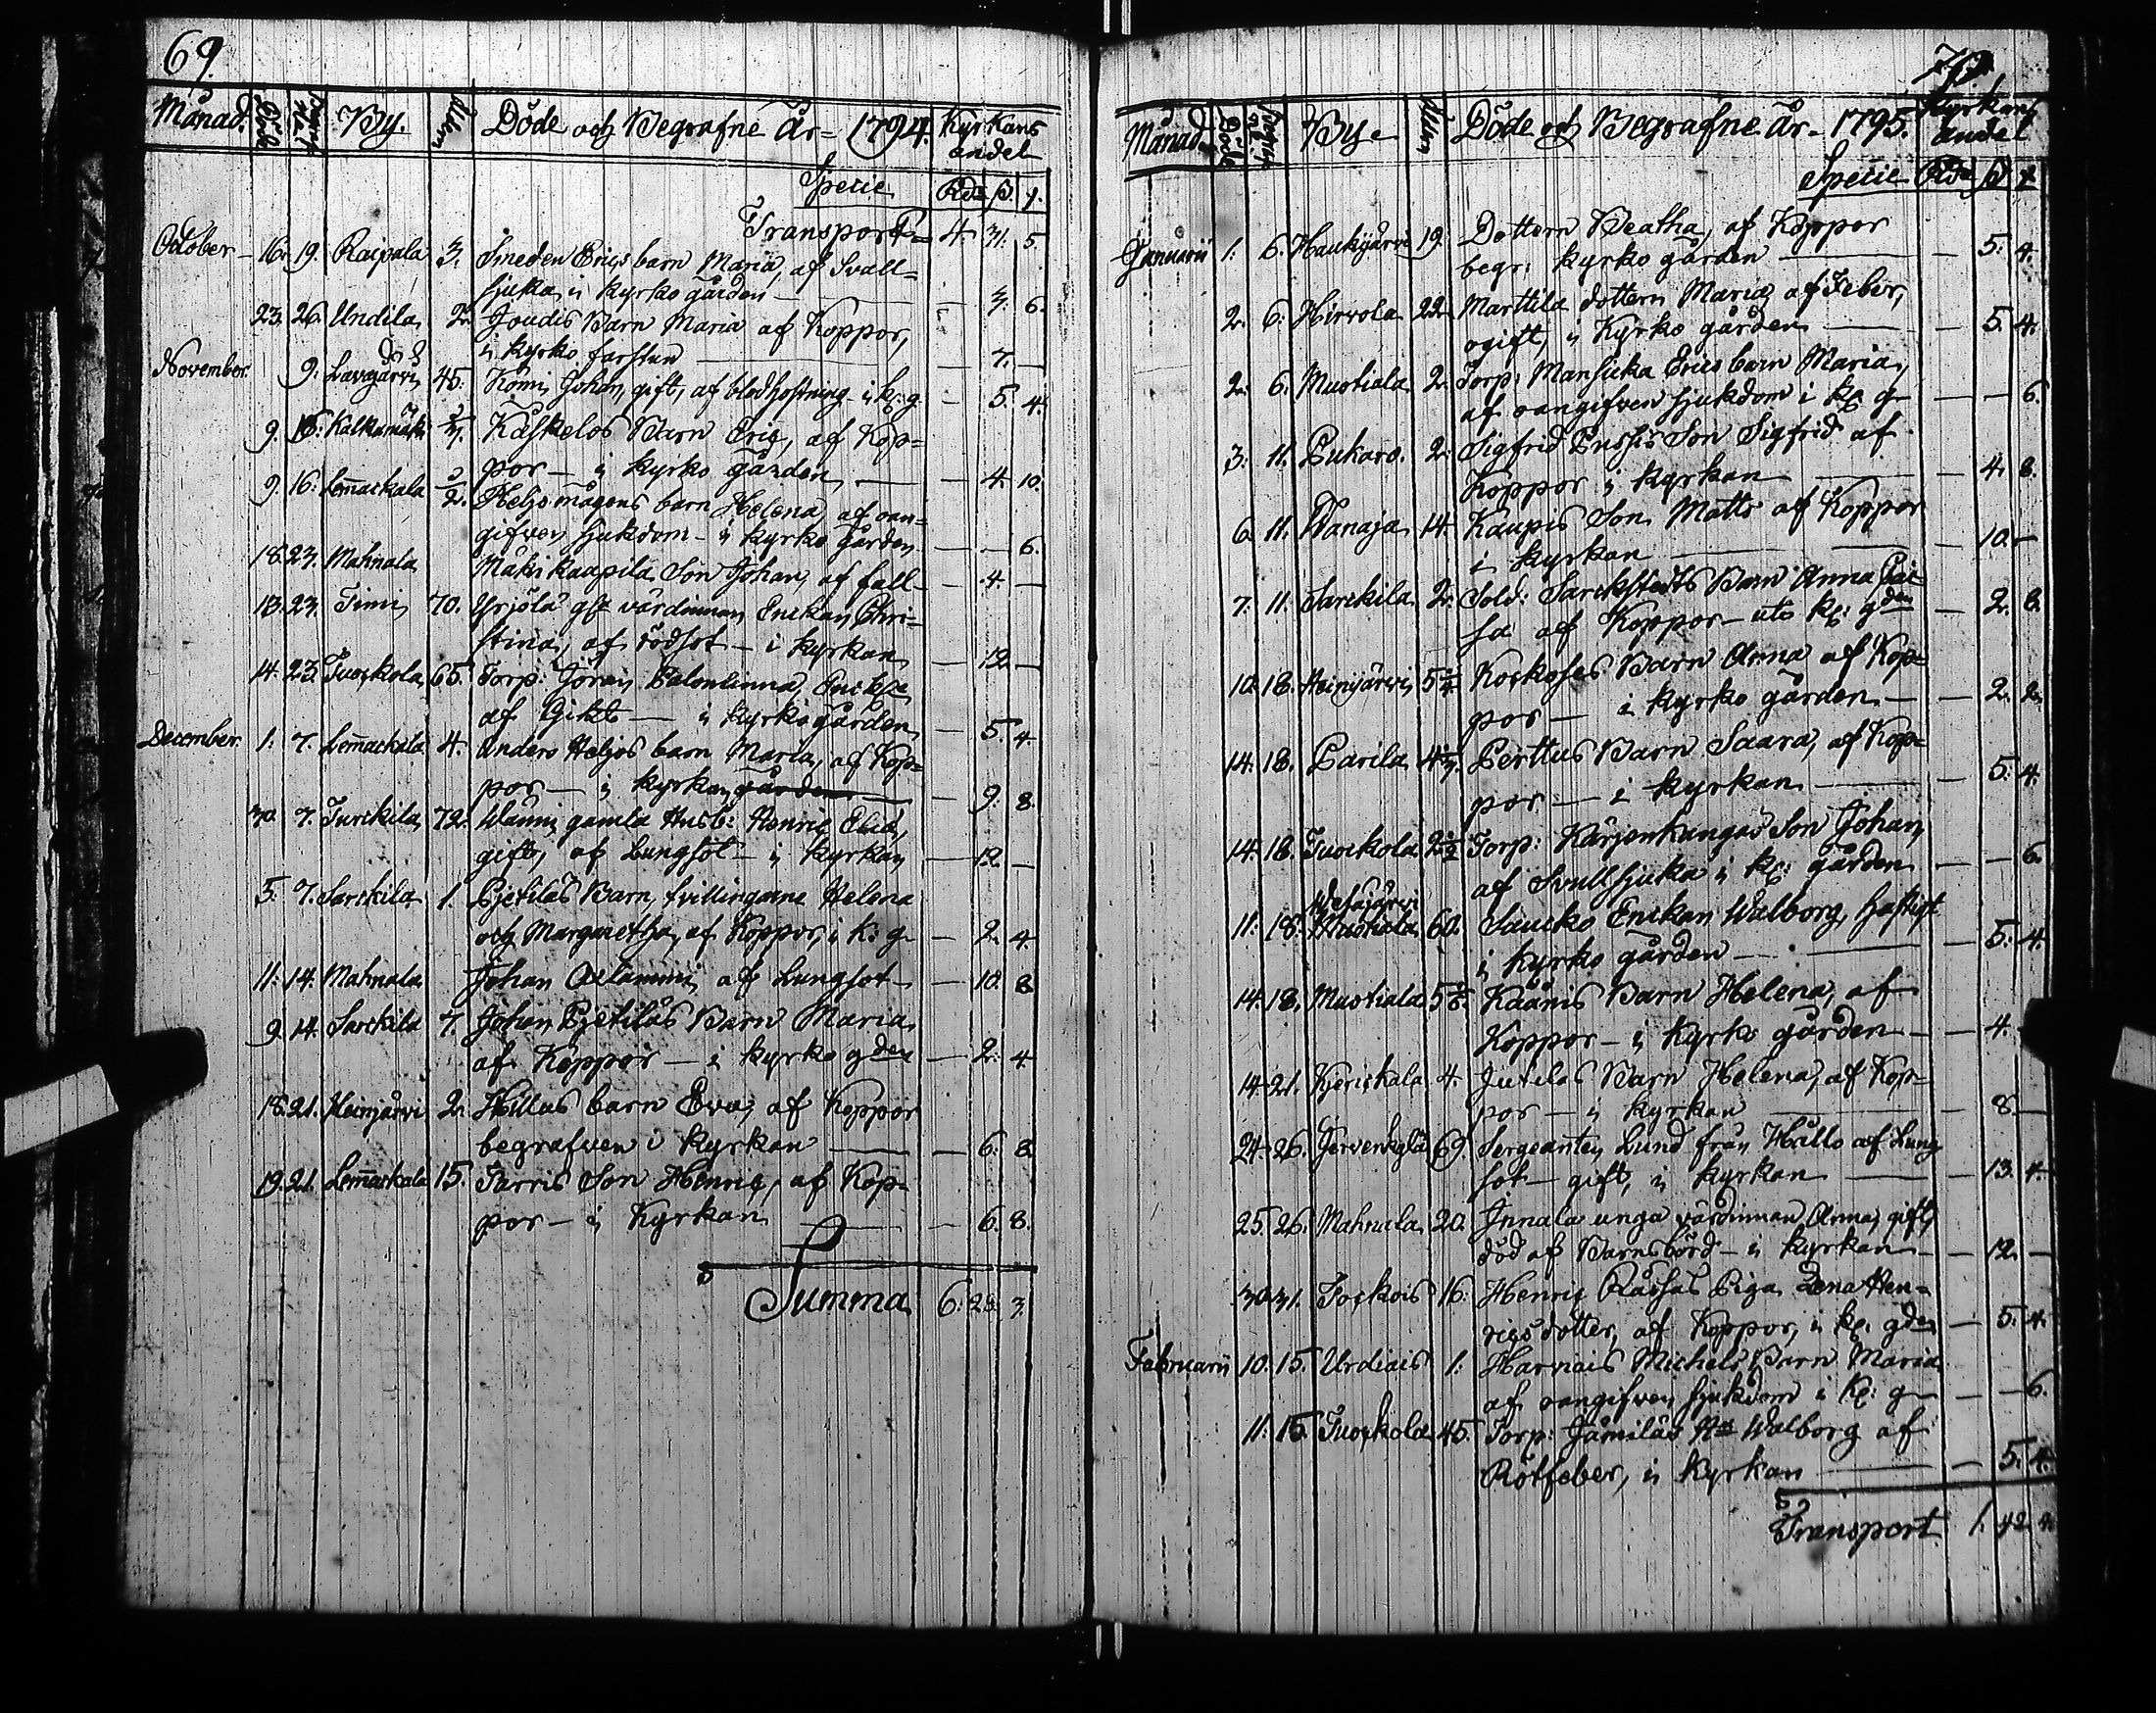 69.
Månad. Döde Begrafne By. Ålder Döde och Begrafne År= 1794. Kyrkans andel
Specie Rdr ß. r.
Transport= 4. 31. 5.
October 16. 19. Raipala 3. Smeden Erics barn Maria, af Svull=
sjuka, i kyrko gården — 3. 6.
23. 26. Undila 2. Joudis Barn Maria af Koppor,
i kyrko farstun — 7. —
November. död 9. Lavajärvi 45. Komi Johan, gift, af blodhostning i k. g. — 5. 4.
9. 16. Kalkumäki Kaskelos Barn Eric, af Kop=
por — i kyrko gården — 4. 10.
9. 16. Lem̄ackala Heljo mågens barn Helena af oan=
gifven sjukdom — i kyrko gården — — 6.
18. 23. Mahnala Mäki kaapila Son Johan, af fall — 4. —
18. 23. Timi 70. Yrjölä gla värdinnan Enkan Chri=
stina, af rödsot — i kyrkan — 12 —
14. 23. Tuockola 65. Torp: Göran Palonlinna,
af Gikt — i kyrko gården — 5. 4.
December. 1. 7. Lem̄ackala 4. Anders Heljos barn Maria, af Kop=
por — i kyrkan gården — 9. 8.
30. 7. Turckila 72. gamla Husb: Henric
gift, af Lungsot — i kyrkan — 12 —
5. 7. Sarckila 1. Pjetilas Barn, tvillingarne Helena
och Margaretha, af Koppor, i k. g. — 2. 4.
11. 14. Mahnala Johan Alammi af Lungsot — 10. 8.
9. 14. Sarckila 7. Johan Pjetiläs Barn Maria
af Koppor — i kyrko gden — 2. 4.
18. 21. Heinjärvi 2. Hillas barn Eva, af Koppor
begrafven i kyrkan — 6. 8.
19. 21. Lem̄ackala 15. Tarris Son Henric, af Kop=
por — i Kyrkan — 6. 8.
Summa 6. 29. 3.
70.
Månad. Döde Begrafne By. Ålder Döde och Begrafne År= 1795. Kyrkans andel
Specie Rdr ß r
Januarii 1. 6. Haukijärvi 19. Dottern Beatha, af Koppor
begr: kyrko gården — 5. 4.
2. 6. Hirvola 22 Marttila dottern Maria af Feber,
ogift, i Kyrko gården — 5. 4.
2. 6. Mustiala 2. Torp: Mansicka Erics barn Maria,
af oangifven sjukdom i k: g — — 6.
3. 11. Pukaro. 2. Sigfrid Pussis Son Sigfrid af
Koppor i kyrkan — 4. 8.
6. 11. Wanaja 14. Kaupis Son Matts af Koppor
i kyrkan — 10. —
7. 11. Sarckila 2. Sold: Sarckstedts Barn Anna Cai=
sa af Koppor — uto k: gden — 2. 8.
10. 18. Heinjärvi 5 Kockoses Barn Anna af Kop=
por — i kyrko gården — 2. 2.
14. 18. Parila 4 Perttus Barn Saara, af Kop=
por — i kyrkan — 5. 4.
14. 18. Tuockola 2 1/2 Torp: Kärjenkangas Son Johan,
af Svullsjuka i k: gården — — 6.
Wesajärvi
11. 18. Mustiala 60. Saucko Enckan Walborg, hastigt
i Kyrko gården — 5. 4.
14. 18. Mustiala 5 Käänis Barn Helena, af
Koppor — i Kyrko gården — 4. —
14. 21. Kjerickala 4. Jutilas Barn Helena, af Kop=
por — i kyrkan — 8. —
24. 26. Jervenkylä 69. Sergeanten Lund från Hållo af Lung
sot — gift, i kyrkan — 13. 4.
25. 26. Mahnala 20. Innala unga värdinnan Anna, gift,
död af Barnsbörd — i kyrkan — 12. —
30. 31. Tockois 16. Henric Rassas Piga Lena Hen=
ricsdotter, af Koppor, i k: gden — 5. 4.
Februarii 10. 15. Urdiais 1. Harviais Michels Barn Maria
af oangifven sjukdom i k: g — — 6.
11. 15. Tuockola 45. Torp: Jämiläs Walborg af
Rötfeber, i Kyrkan — 5. 4.
Transport 1. 42 4.